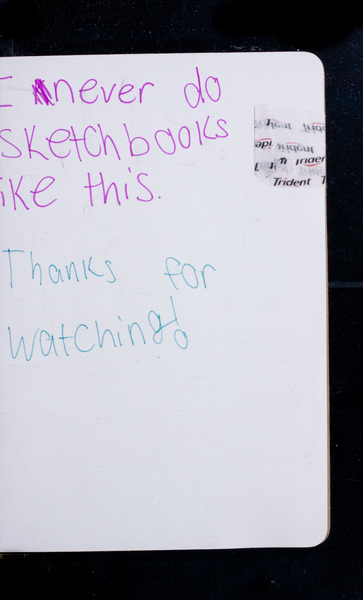 I never do
sketchbooks
ike this.
Thanks for
watching!
Trident
Trident
Trident T